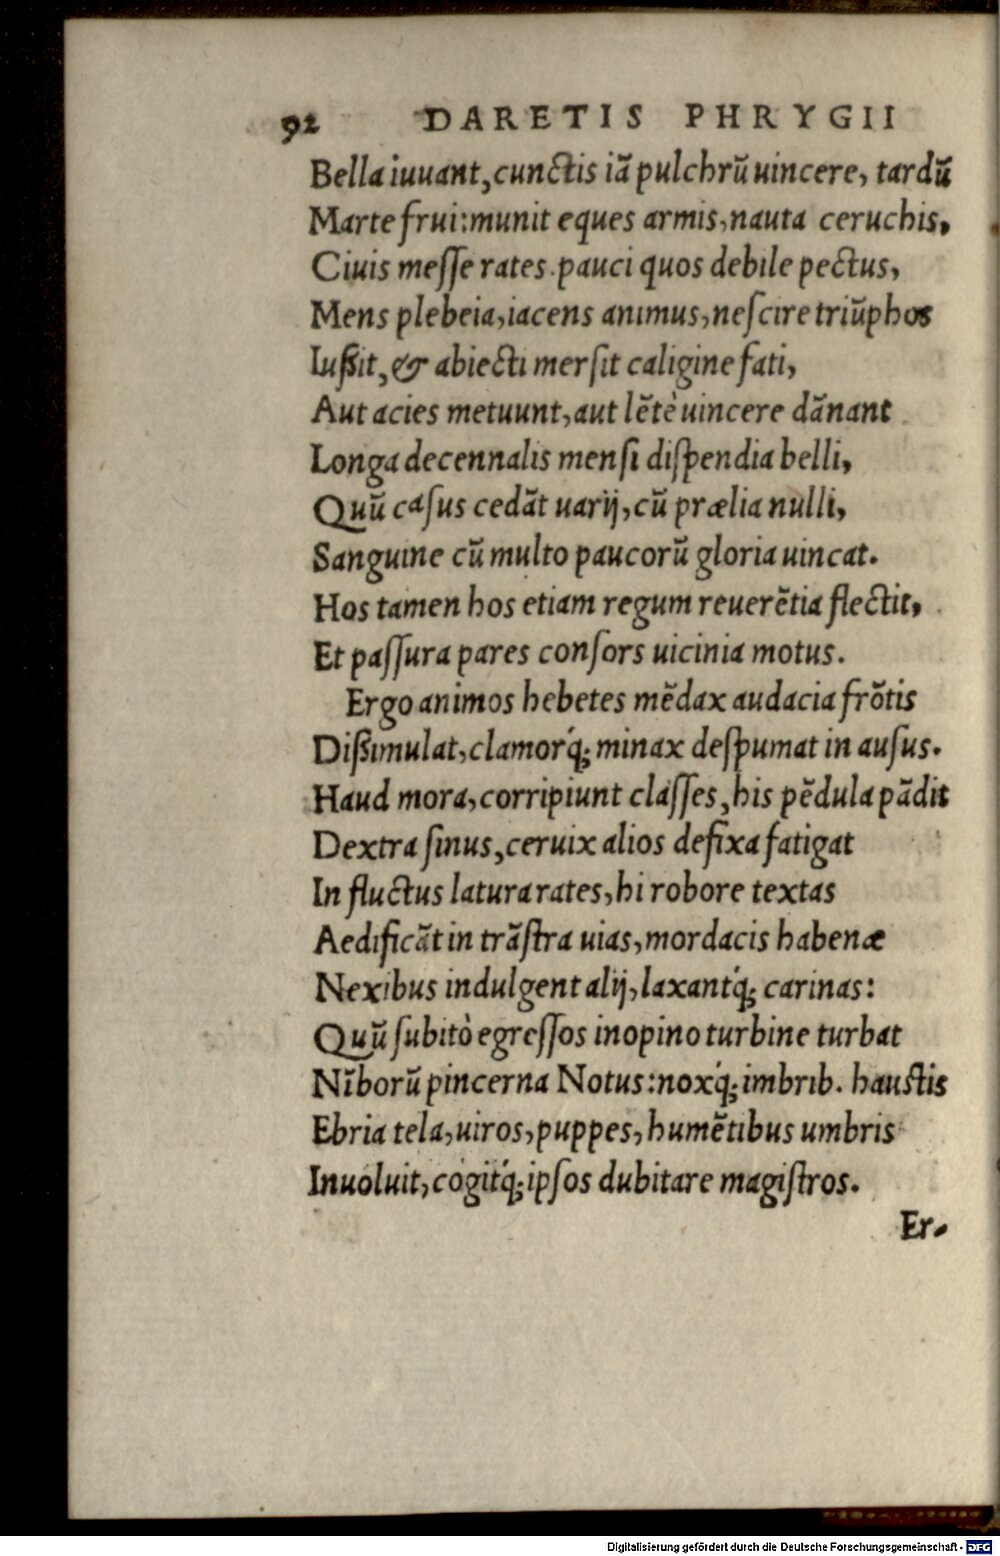 92 DARETIS PHRYGII
Bella iuuant, cunctis iā pulchrū uincere, tardū
Marte frui: munit eques armis, nauta ceruchis,
Ciuis messe rates. pauci quos debile pectus,
Mens plebeia, iacens animus, nescire triūphos
Iußit, & abiecti mersit caligine fati,
Aut acies metuunt, aut lētè uincere dānant
Longa decennalis mensi dispendia belli,
Quū casus cedāt uarij, cū prælia nulli,
Sanguine cū multo paucorū gloria uincat.
Hos tamen hos etiam regum reuerētia flectit,
Et passura pares consors uicinia motus.
Ergo animos hebetes mēdax audacia frōtis
Dißimulat, clamorq́; minax despumat in ausus.
Haud mora, corripiunt classes, his pēdula pādit
Dextra sinus, ceruix alios defixa fatigat
In fluctus latura rates, hi robore textas
Aedificāt in trāstra uias, mordacis habenæ
Nexibus indulgent alij, laxantq́; carinas:
Quū subitò egressos inopino turbine turbat
Nīborū pincerna Notus: noxq́; imbrib. haustis
Ebria tela, uiros, puppes, humētibus umbris
Inuoluit, cogitq́; ipsos dubitare magistros.
Er-
Digitalisierung gefördert durch die Deutsche Forschungsgemeinschaft - DFG